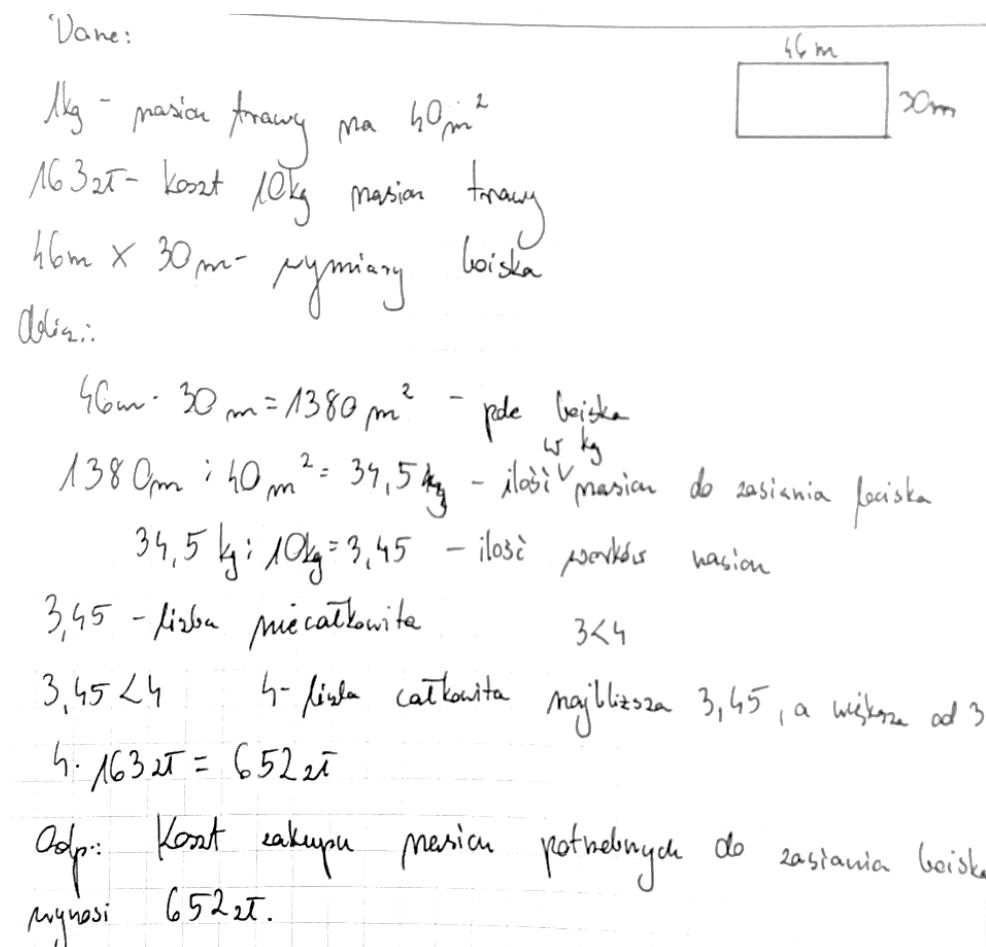 Dane:
46 m
30m
1kg - nasion trawy na 40 m²
163zł - koszt 10kg nasion trawy
46m x 30m - wymiary boiska
Oblicz.:
46m · 30 m = 1380 m² - pole boiska
w kg
1380m : 40 m² = 34,5 kg - ilość nasion do zasiania boiska
34,5 kg : 10kg = 3,45 - ilość worków nasion
3,45 - liczba niecałkowita 3<4
3,45 < 4 4 - liczba całkowita najbliższa 3,45, a większa od 3
4 · 163 zł = 652 zł
Odp.: Koszt zakupu nasion potrzebnych do zasiania boiska
wynosi 652 zł.